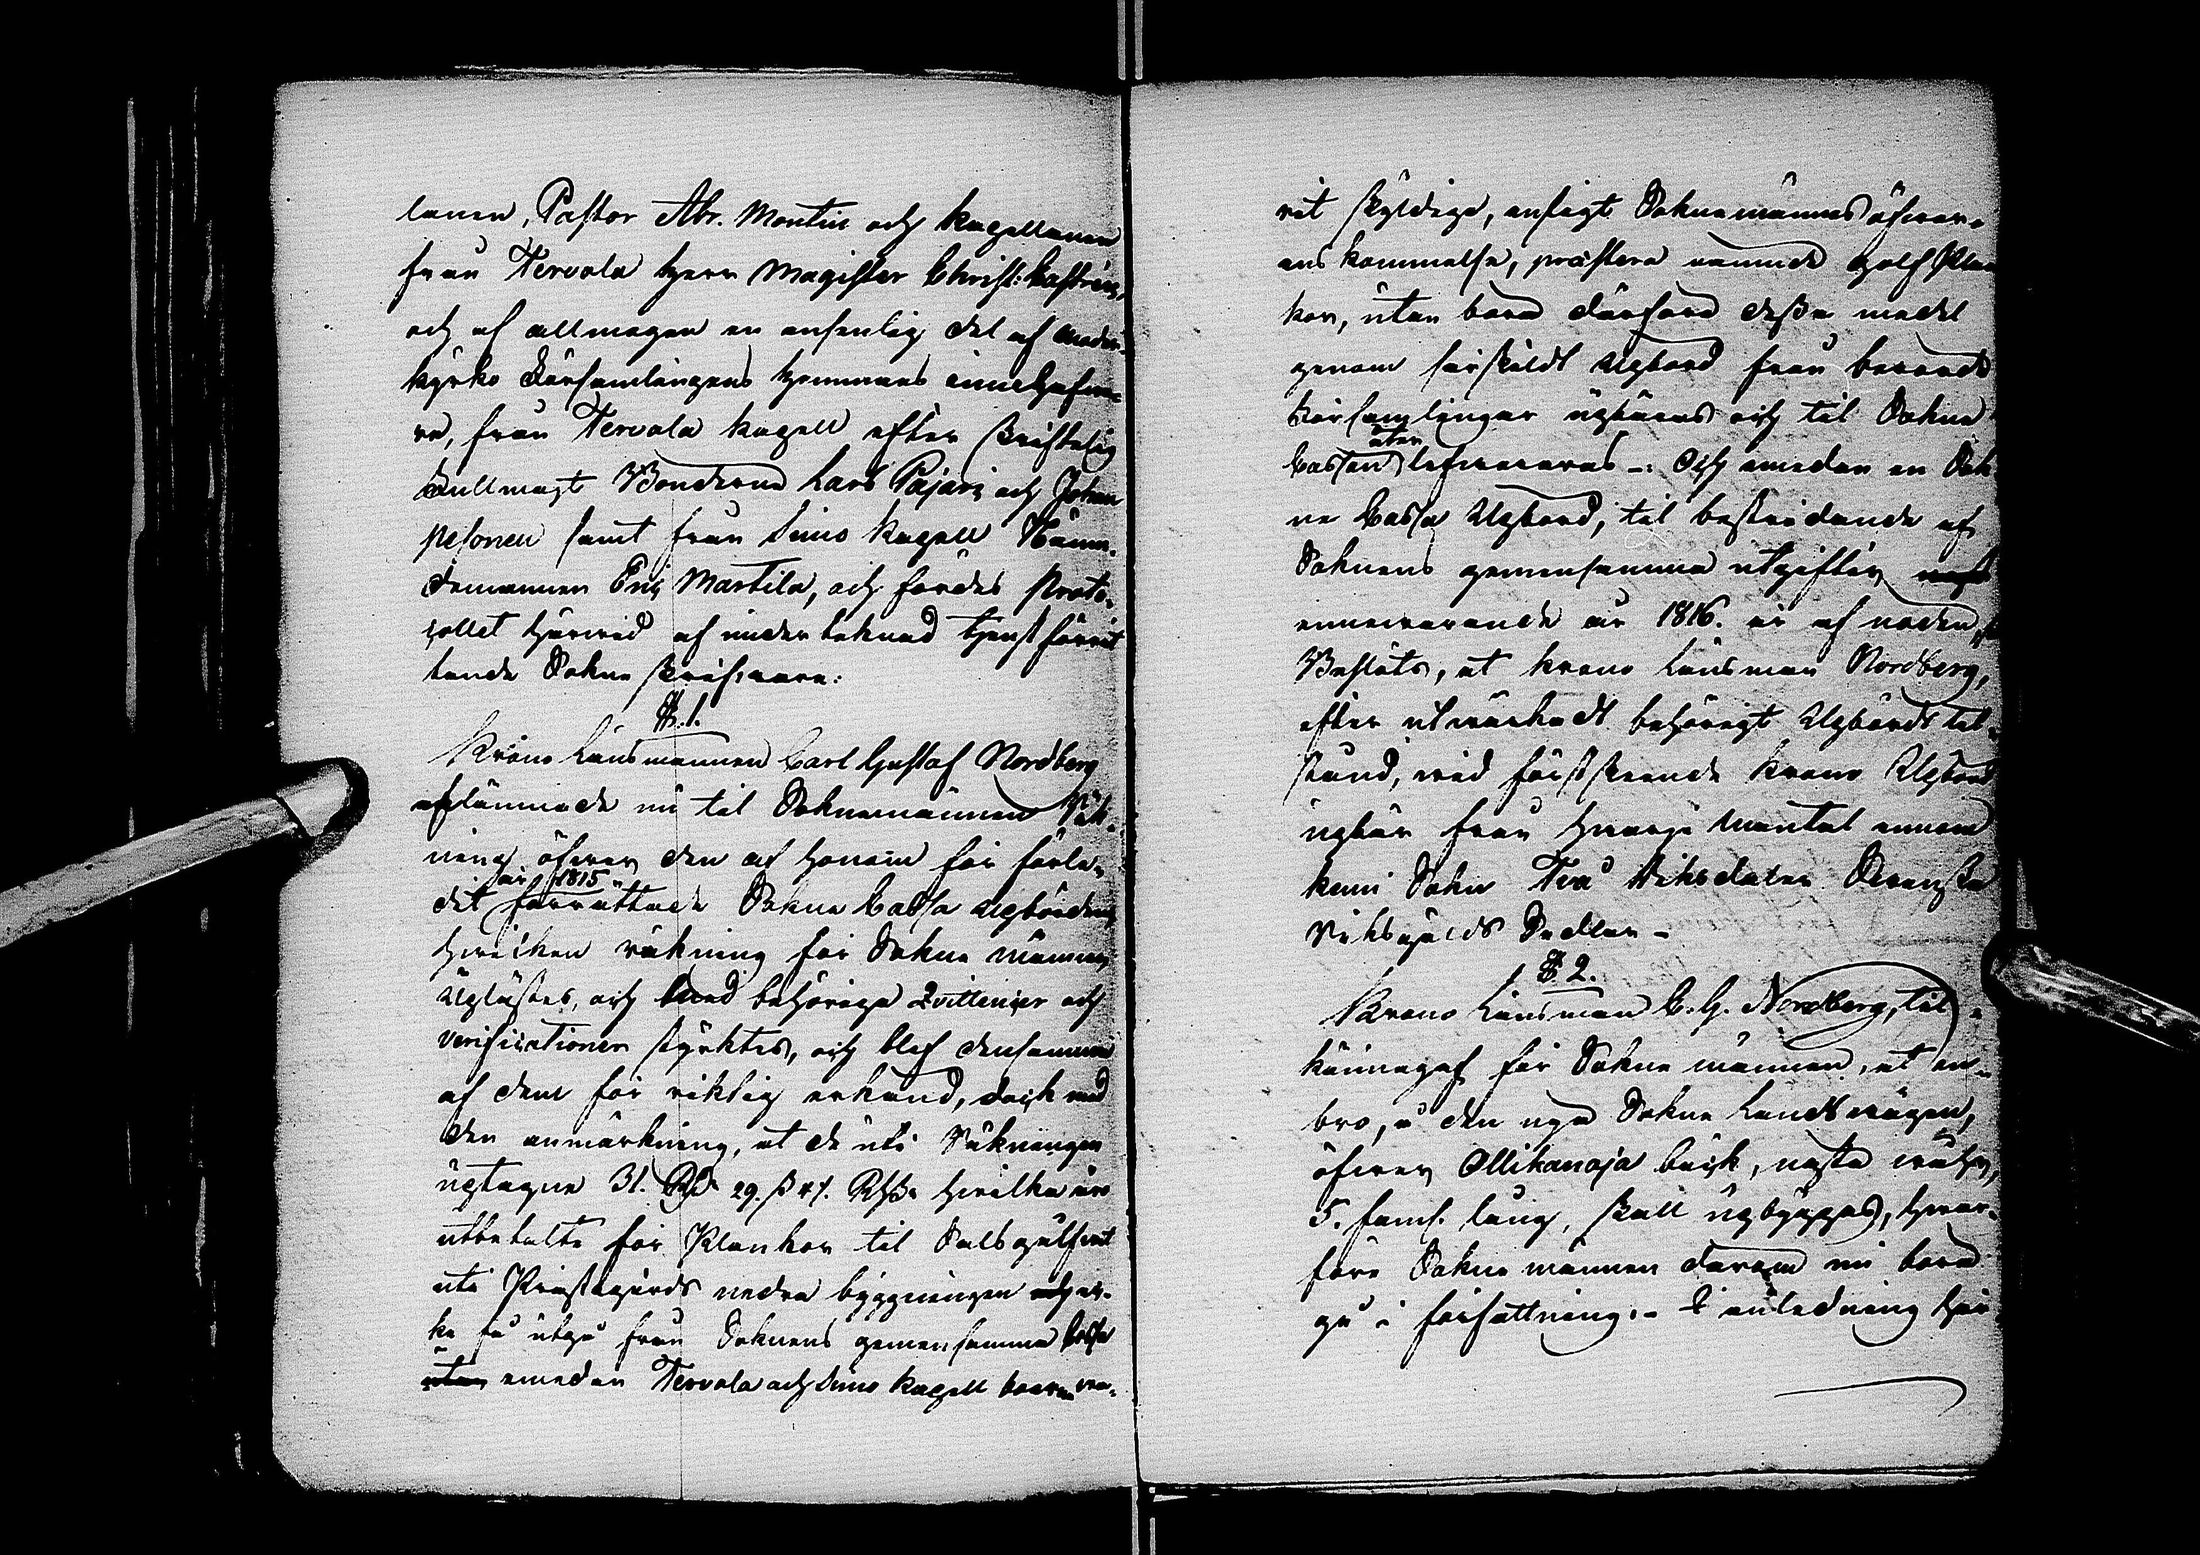 lanen, Pastor Abr. Montin och kapellanen
från Tervola Herr Magister Christ: Castrén,
och af allmogen en ansenlig del af moder-
kyrko Församlingens Hemmans innehafva-
re, från Tervola kapell efter skriftelig
Fullmagt Bönderne Lars Pajari och Johan
Pesonen samt från Simo kapell Näm-
demannen Eric Martila, och fördes Proto-
collet härvid af undertecknad tjenst förrät
tande Sokne skrifvare:
§. 1.
Krono Länsmannen Carl Gustaf Nordberg
aflämnade nu til Soknemännen Räk-
ning öfver den af honom för förle-
år 1815
dit förrättade Sokne Cassa Upbörden,
hvilken räkning för Sokne männen
uplästes, och med behöriga Qvittencier och
verificationer styrktes, och blef densamma
af dem för riktig erkänd, dock med
den anmärkning, at de uti Räkningen
uptagne 31. Rd 29. ß 4 r. Rgß. hvilka äro
utbetalte för Plankor til Salsgålfvet
uti Prästegårds nedra byggningen och ic-
ke få utgå från Soknens gemensamma Cassa
utan emedan Tervola och Simo kapell boer va-
rit skyldige, enligt Soknemännens öfver-
ens kommelse, præstera nämnde golf Plan
kor, utan borde därföre desse medel
genom särskildt Upbörd från berörde
Församlingar upbäras och til Sokne
åter
Cassan lefvereras -: Och emedan en Sok
ne Cassa Upbörd, til bestridande af
Soknens gemensamma utgifter
innevarande år 1816. är af nöden,
Beslöts, at krono Länsman Nordberg,
efter utvärkadt behörigt Upbörds til-
stånd, vid först skeende krono Upbörd
upbär från hvarje Mantal innom
kemi Sokn Två Riksdaler Svenska
Riksgälds Sedlar -
§ 2.
Krono Länsman C. G. Nordberg, til-
kännagaf för Sokne männen, at en
bro, å den nya Sokne Landsvägen,
öfver Ollikanoja bäck, nästa
5. famn. lång, skall upbyggas, hvar-
före Sokne männen därom nu borde
gå i författning. - I anledning här